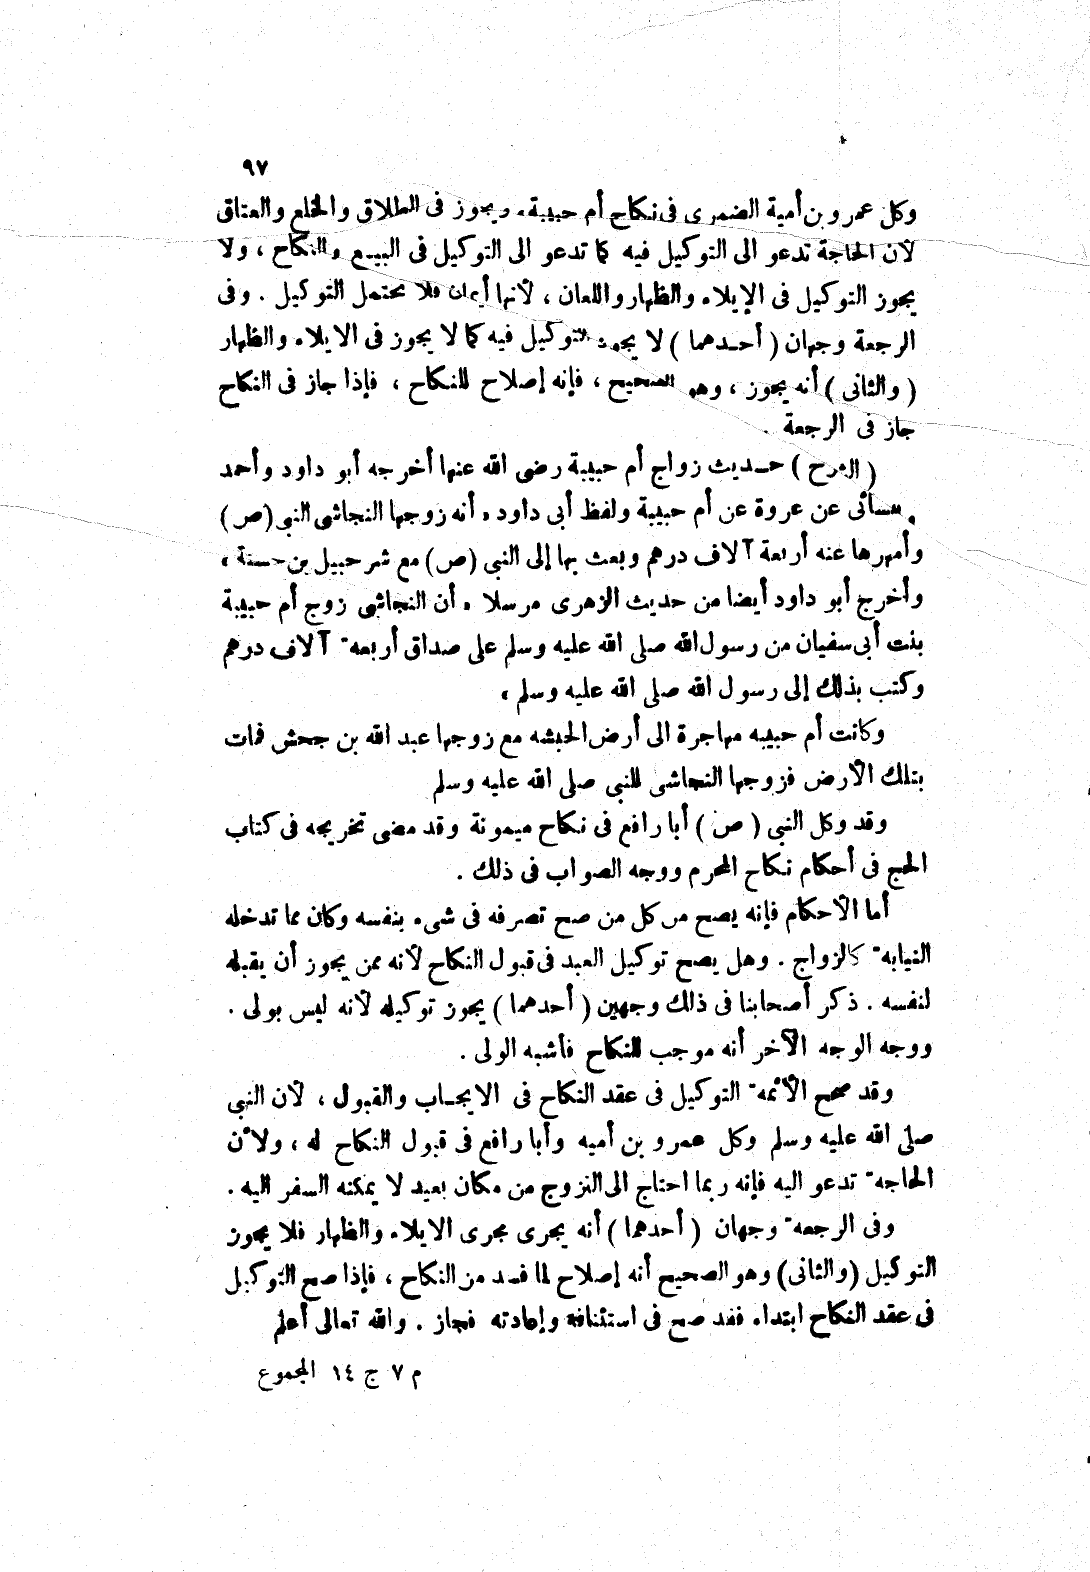 ٩٧
وكل عمرو بن أمية الضمرى فى نكاح أم حبيبة، ويجوز فى الطلاق والخلع والعتاق
لأن الحاجة تدعو الى التوكيل فيه كما تدعو الى التوكيل فى البيـع والنكاح ، ولا
يجوز التوكيل فى الإيلاء والظهار واللعان ، لأنها أيمان فلا تحتمل التوكيل . وفى
الرجعة وجهان ( أحـدهما ) لا يجوز التوكيل فيه كما لا يجوز فى الايلاء والظهار
( والثانى ) أنه يجوز ، وهو الصحيح ، فإنه إصلاح للنكاح ، فإذا جاز فى النكاح
جاز فى الرجعة .
( الشرح ) حـديث زواج أم حبيبة رضى الله عنها أخرجه أبو داود وأحمد
والنسائى عن عروة عن أم حبيبة ولفظ أبى داود « أنه زوجها النجاشى النبى (ص)
وأمهرها عنه أربعة آلاف درهم وبعث بها إلى النبى (ص) مع شرحبيل بن حسنة »
وأخرج أبو داود أيضا من حديث الزهرى مرسلا « أن النجاشى زوج أم حبيبة
بنت أبى سفيان من رسول الله صلى الله عليه وسلم على صداق أربعه آلاف درهم
وكتب بذلك إلى رسول الله صلى الله عليه وسلم »
وكانت أم حبيبه مهاجرة الى أرض الحبشه مع زوجها عبد الله بن جحش فمات
بتلك الأرض فزوجها النجاشى للنبى صلى الله عليه وسلم
وقد وكل النبى ( ص ) أبا رافع فى نكاح ميمونة وقد مضى تخريجه فى كتاب
الحج فى أحكام نكاح المحرم ووجه الصواب فى ذلك .
أما الأحكام فإنه يصح من كل من صح تصرفه فى شىء بنفسه وكان مما تدخله
النيابه كالزواج . وهل يصح توكيل العبد فى قبول النكاح لأنه ممن يجوز أن يقبله
لنفسه . ذكر أصحابنا فى ذلك وجهين ( أحدهما ) يجوز توكيله لأنه ليس بولى .
ووجه الوجه الآخر أنه موجب للنكاح فأشبه الولى .
وقد صحح الأئمه التوكيل فى عقد النكاح فى الايجـاب والقبول ، لأن النبى
صلى الله عليه وسلم وكل عمرو بن أميه وأبا رافع فى قبول النكاح له ، ولأن
الحاجه تدعو اليه فإنه ربما احتاج الى التزوج من مكان بعيد لا يمكنه السفر اليه .
وفى الرجعه وجهان ( أحدهما ) أنه يجرى مجرى الايلاء والظهار فلا يجوز
التوكيل (والثانى) وهو الصحيح أنه إصلاح لما فسد من النكاح ، فإذا صح التوكيل
فى عقد النكاح ابتداء فقد صح فى استئنافه وإعادته فجاز . والله تعالى أعلم
م ٧ ج ١٤ المجموع